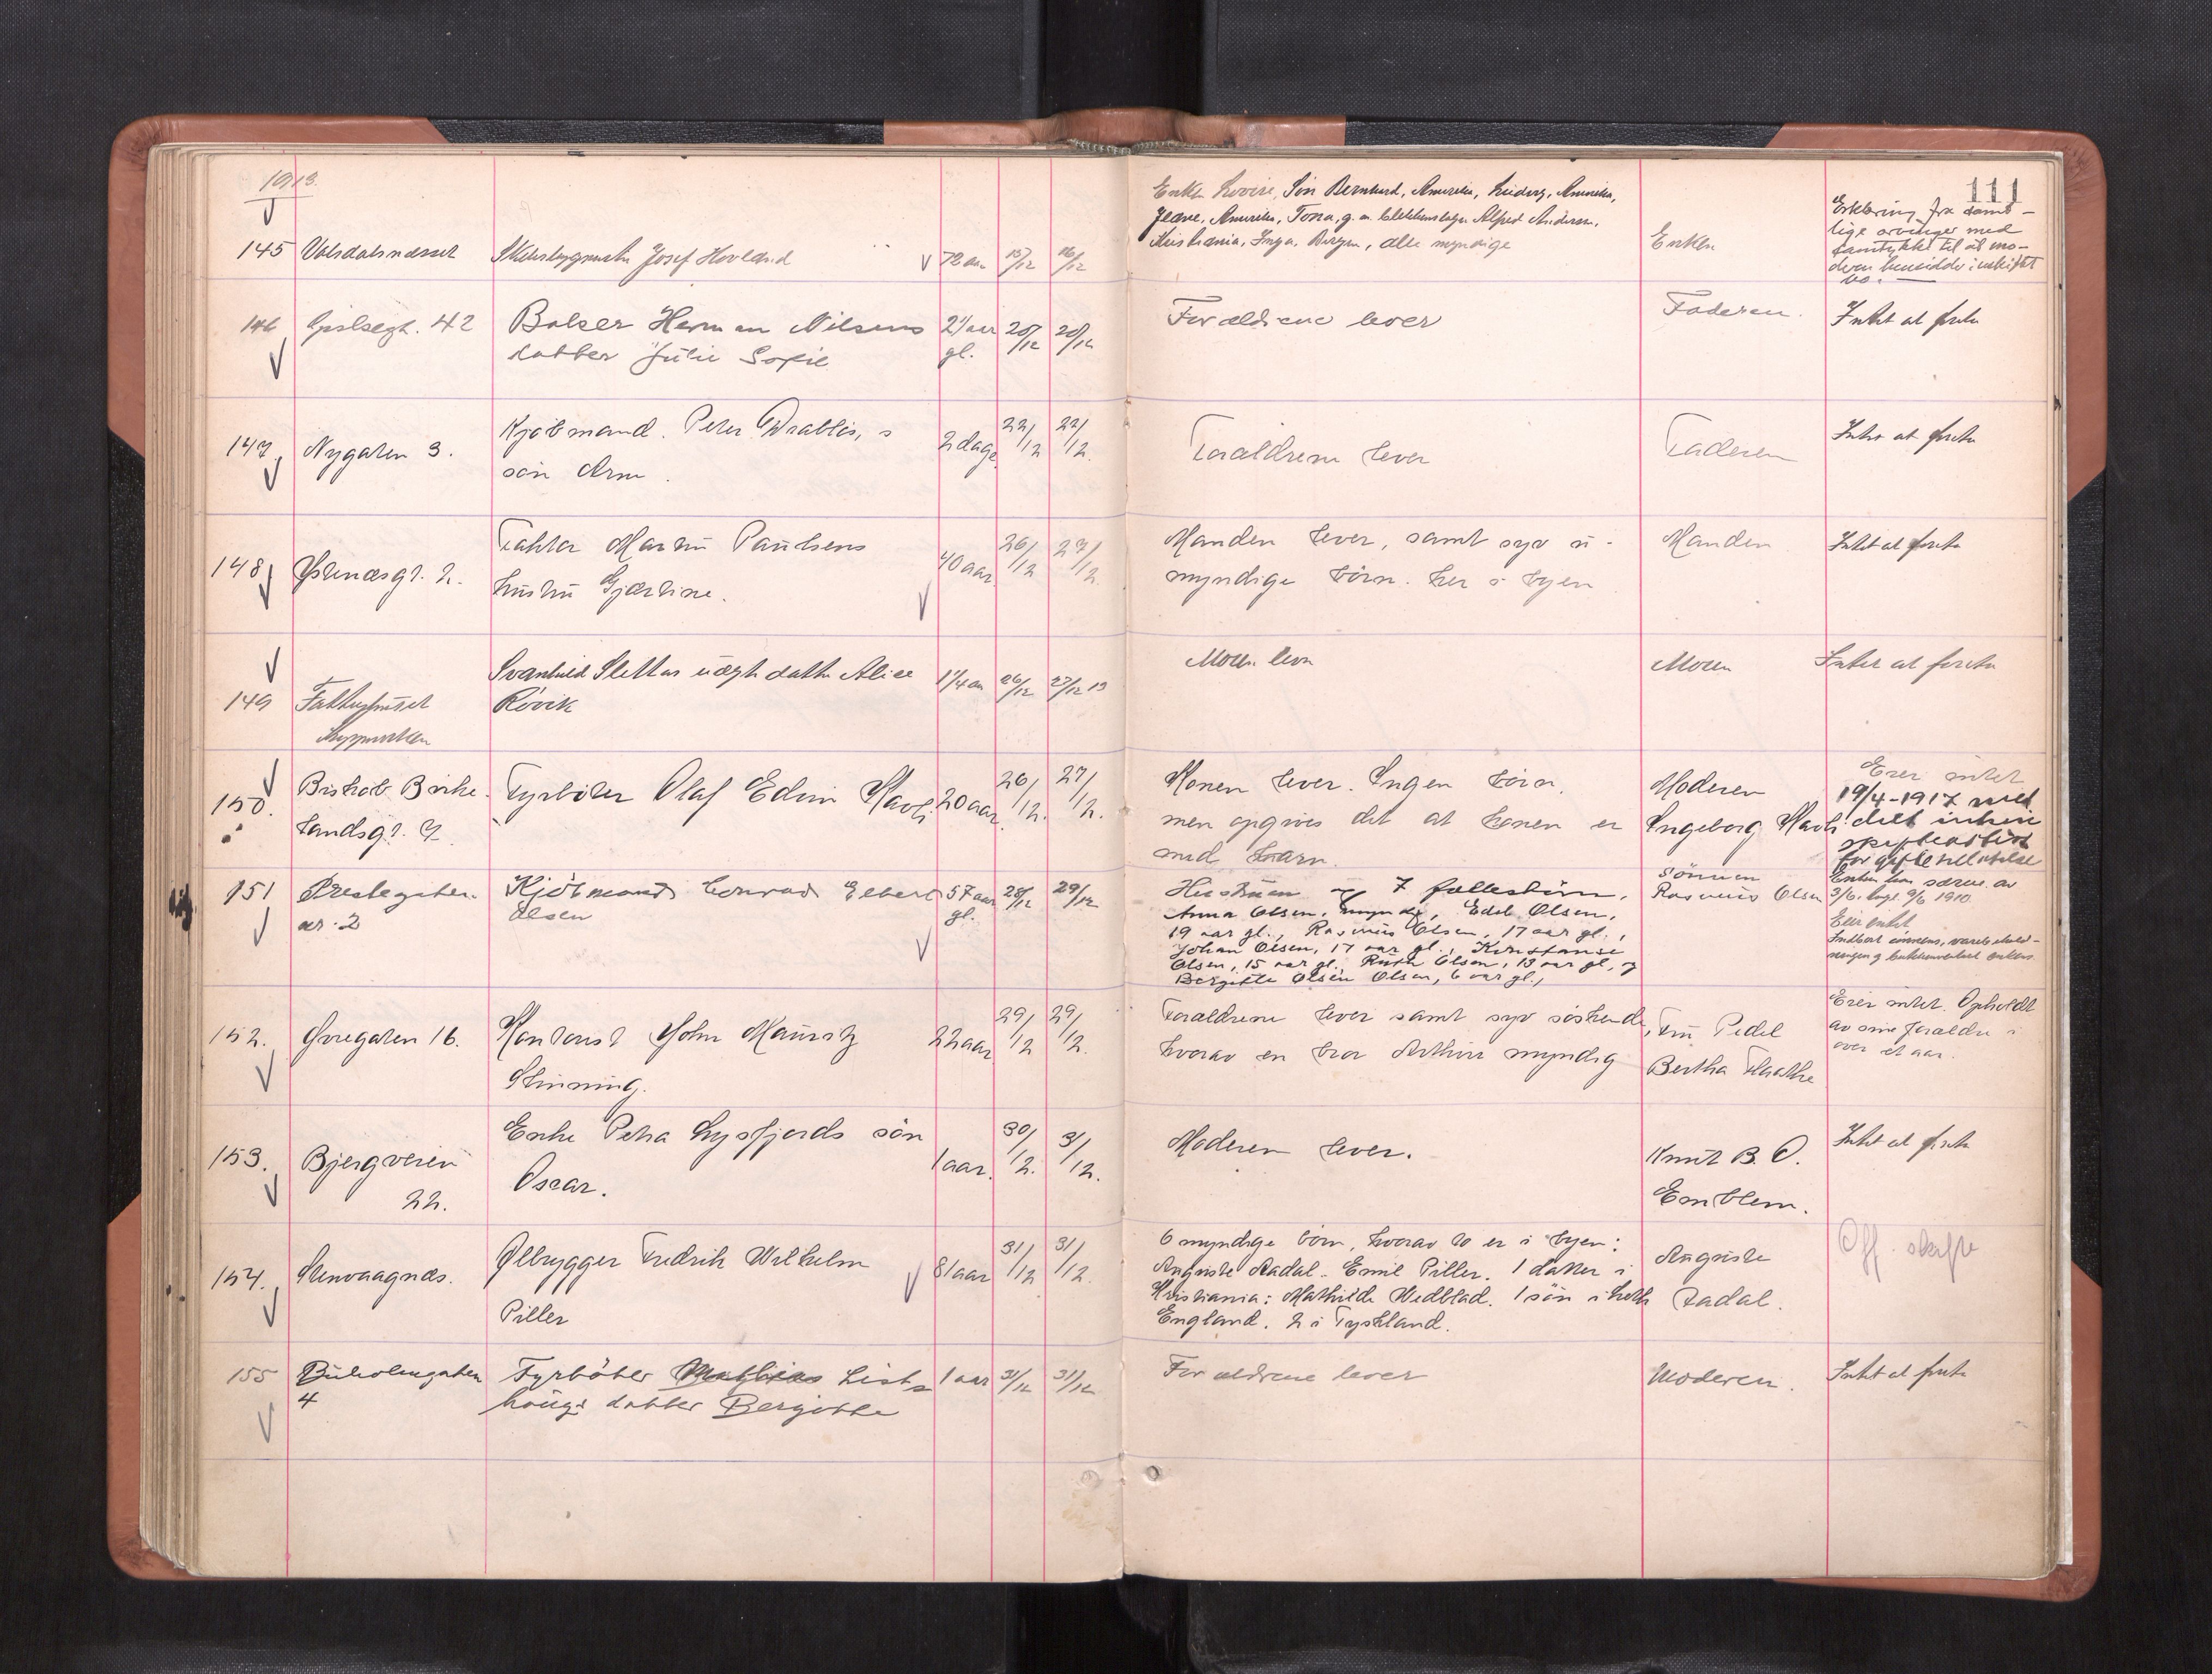 1913.
111
145 Volsdalsnæsset Skibsbygmester Josef Hovland 78 aar 15/12 16/12
Enken Lovise, Søn Bernhard, Amerika, Ludvig, Amerika,
Amerika, Tora, g. m. Alfred Andersen,
Kristiania, Inga, Bergen, alle myndige
Enken
Erklæring fra samt-
lige arvinger med
samtykke til at mo-
deren hensidder i uskiftet
bo.
146 42 Bakser Herman Nilsens 2 aar 20/12 20/12
datter Julie Sofie gl.
Forældrene lever
Faderen.
Intet at foreta
147 Nygaten 3. Kjøbmand Peter Drabløs, s 2 dage 22/12 22/12.
søn Arne.
Forældrene lever
Faderen
Intet at foreta
148 2. Faktor Martin Paulsens 40 aar 26/12 27/12.
hustru Gjertine.
Manden lever, samt syv u-
myndige børn. her i byen
Manden
Intet at foreta
149 Svanhild Slettas uægte datter Alice 1 1/4 aar 26/12 27/12 13
Røvik
Moren lever
Moren
Intet at foreta
150. Biskob Birke- Fyrbøter Olaf Edvin Havli. 20 aar. 26/12. 27/12.
landsgt.
Konen lever. Ingen børn,
men opgives det at konen er
med barn.
Moderen
Ingeborg Havli
Eier intet
19/4-1917 med-
delt
skifteattest
for giftetilladelse
151 Prestegaten Kjøbmand Conrad Elbert 57 aar 28/12 29/12
nr. 2 Olsen gl.
Hustruen og 7 fællesbørn,
Anna Olsen, myndig, Edel Olsen,
19 aar gl., Rasmus Olsen, 17 aar gl.,
Johan Olsen, 17 aar gl., Konstanse
Olsen, 15 aar gl. Ruth Olsen, 13 aar gl, og
Bergitte Olsen Olsen, 6 aar gl.,
Sønnen
Rasmus Olsen
Enken har særeie av
3/6. tingl. 9/6 1910.
Eier intet
152. 16. Kontorist John Mauritz 22 aar 29/12 29/12.
Skinning.
Forældrene lever samt syv søskende,
hvorav en bror Arthur myndig
Fru Pedel
Bertha
Eier intet. Opholdt
av sine forældre i
over et aar.
153. Bjergveien Enke Petra Lysfjords søn 1 aar. 30/12. 31/12.
22. Oscar.
Moderen lever.
Knut B. O.
Emblem.
Intet at foreta
154. Stenvaagnæs. Ølbrygger Fredrik Wilhelm 81 aar 31/12 31/12.
Piller
6 myndige børn, hvorav to er i byen:
Auguste Aadal. Emil Piller. 1 datter i
Kristiania: Mathilde Wedblad. 1 søn i
England. 2 i Tyskland.
Auguste
Aadal.
Off. skifte
155 Fyrbøter Mathias List- 1 aar 31/12 31/12
4 haugs datter Bergitte
Forældrene lever
Moderen.
Intet at foreta